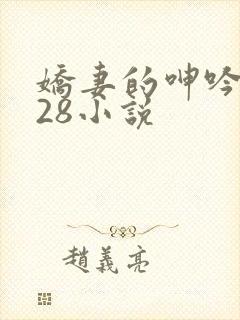 嬌妻的呻吟
28小說
趙義亮